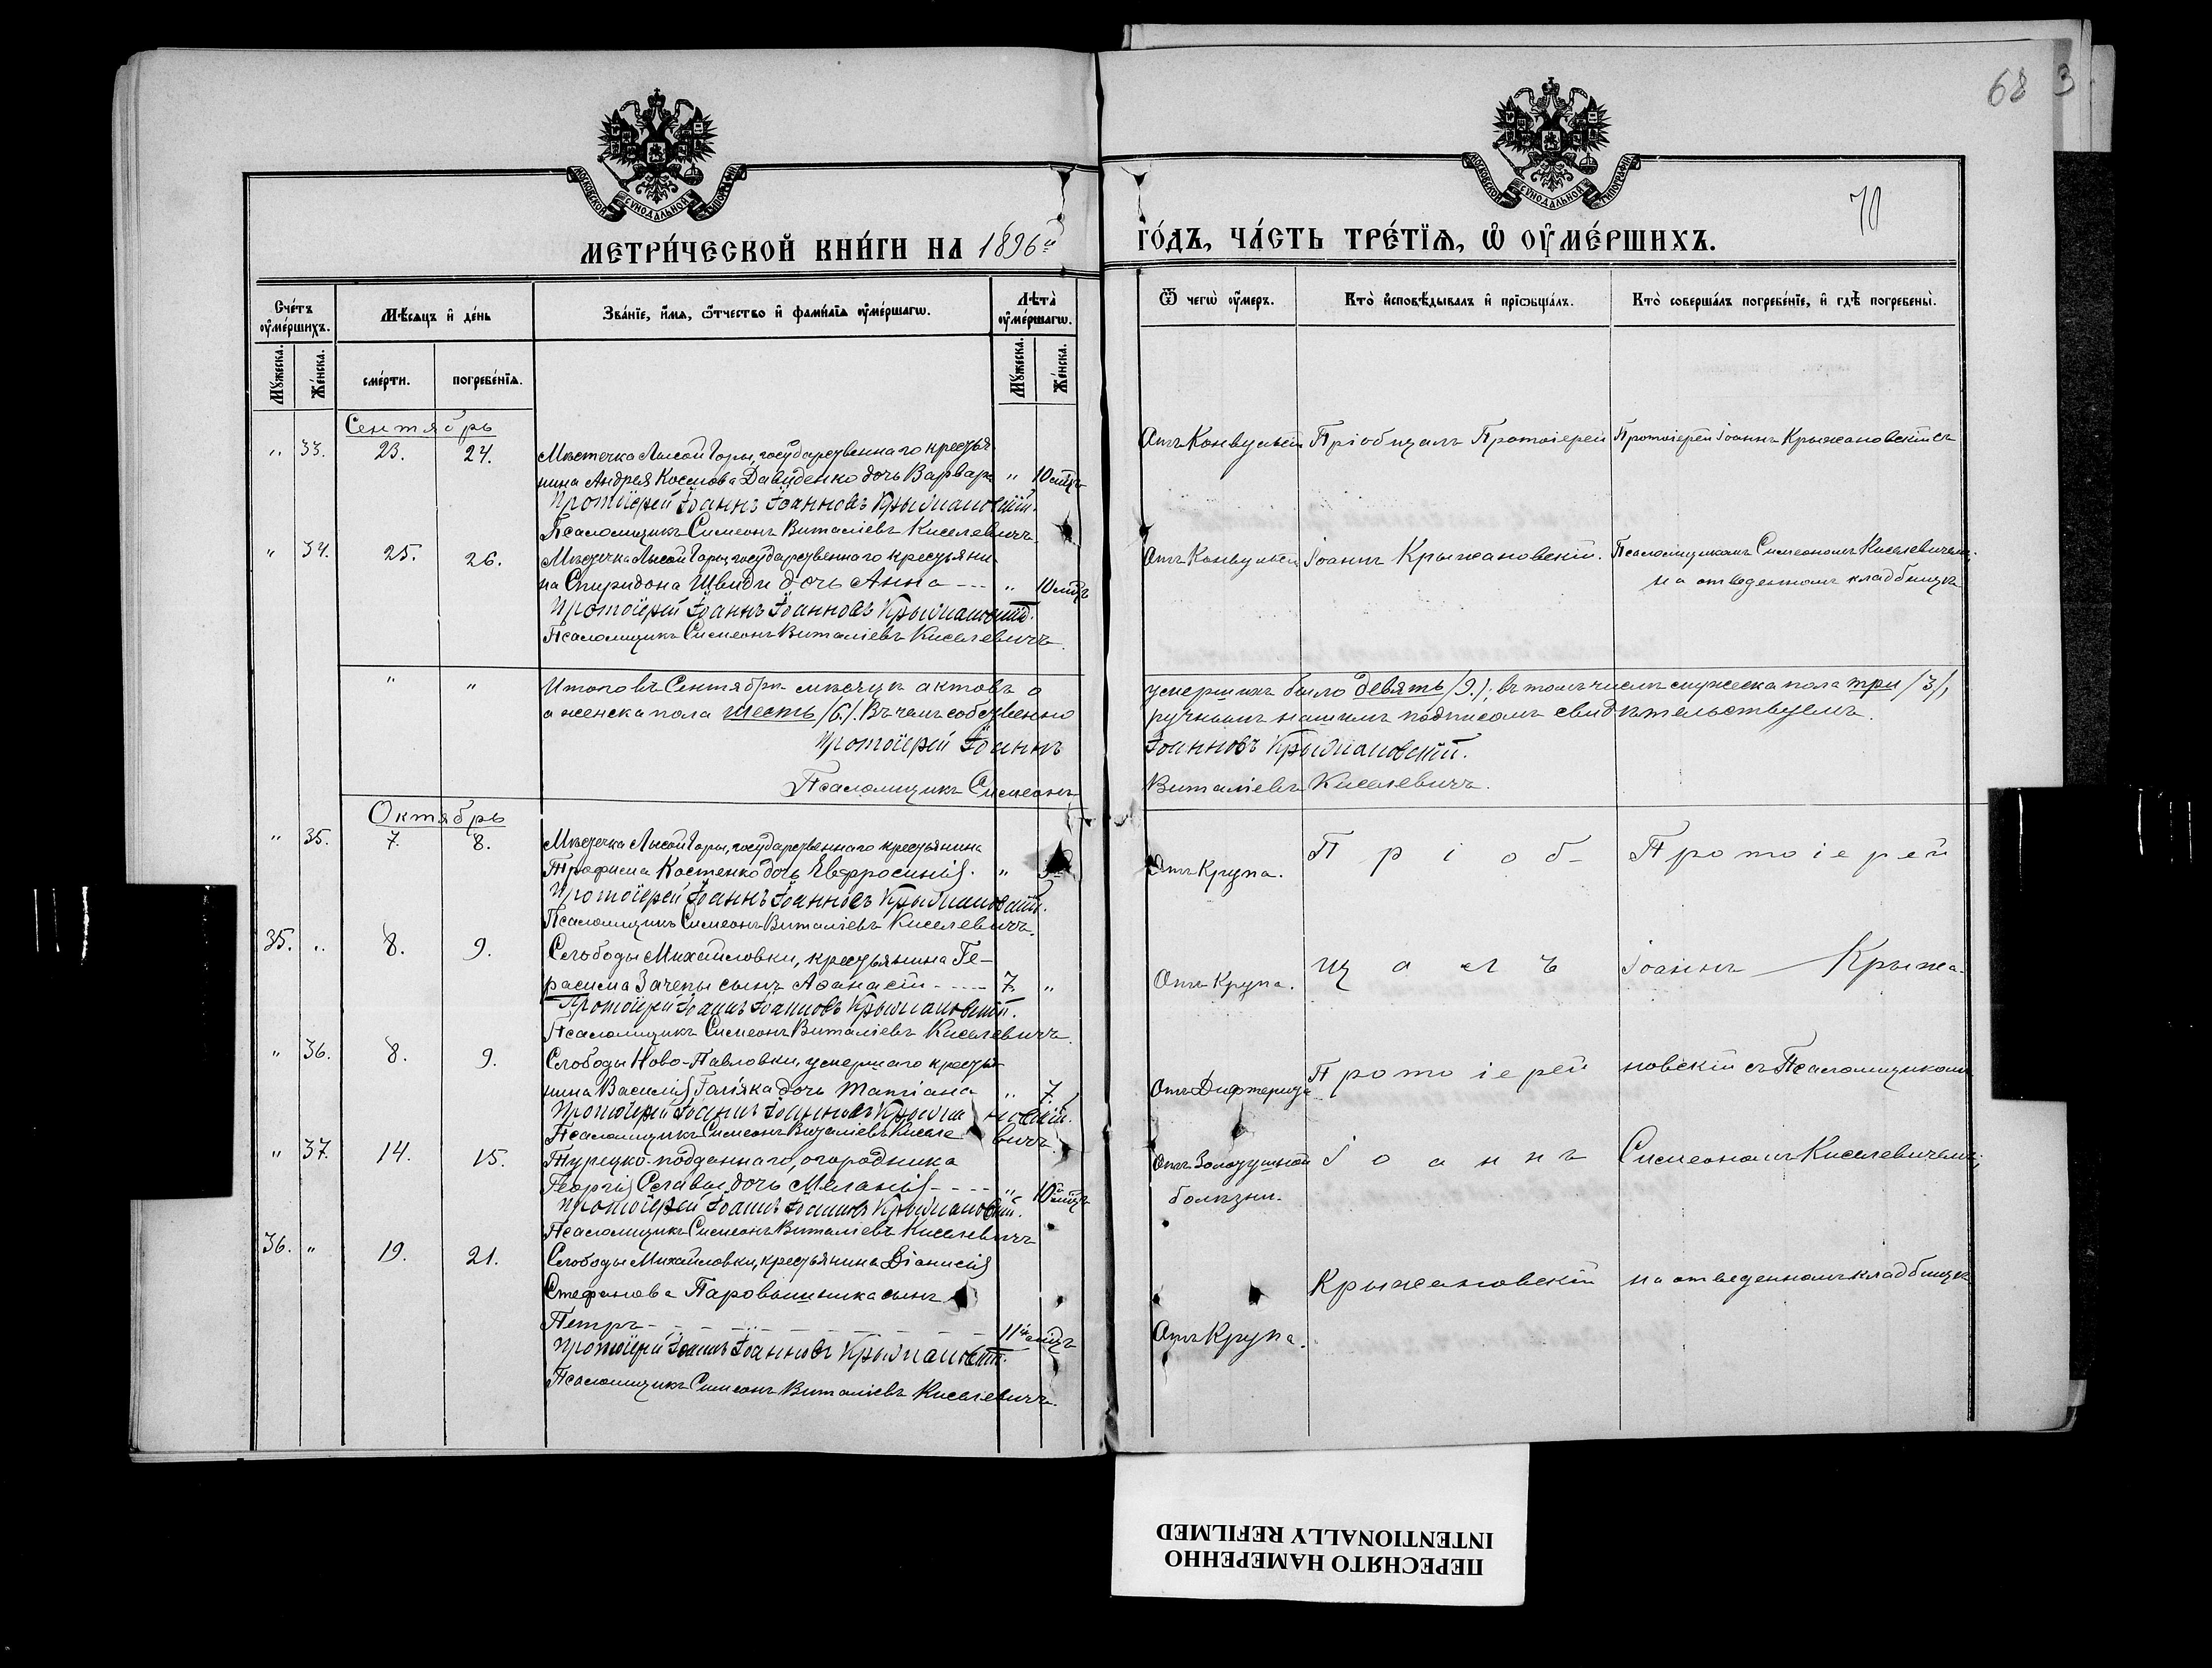 68
3
70
МОСКОВСКОЙ СУНОДАЛЬНОЙ ТИПОГРАФІИ
МОСКОВСКОЙ СУНОДАЛЬНОЙ ТИПОГРАФІИ
МЕТРИ́ЧЕСКОЙ КНИ́ГИ НА 1896й
ГО́ДЪ, ЧА́СТЬ ТРЕ́ТІѦ, Ѽ ОУ҆МЕ́РШИХЪ.
Сче́тъ оу҆ме́ршихъ.
Мꙋ́жеска.
Же́нска.
Мѣ́сѧцъ и҆ де́нь
сме́рти.
погребе́нїѧ.
Зва́нїе, и҆́мѧ, ѻ҆́тчество и҆ фами́лїѧ оу҆ме́ршагѡ.
Лѣ́та оу҆ме́ршагѡ.
Мꙋ́жеска.
Же́нска.
Ѿ чегѡ̀ оу҆́меръ.
Кто̀ и҆сповѣ́дывалъ и҆ прїѡбща́лъ.
Кто̀ соверша́лъ погребе́нїе, и҆ гдѣ̀ погребены̀.
Сентябрь
" 33. 23. 24. Мѣстечка Лысой Горы, государственнаго крестья
нина Андрея Космова Давиденко дочь Варвара " 10 мцъ
Протоіерей Іоаннъ Іоанновъ Крыжановскій.
Псаломщикъ Симеонъ Виталіевъ Киселевичъ.
Отъ Конвульсіи Пріобщалъ Протоіерей Протоіерей Іоаннъ Крыжановскій съ
" 34. 25. 26. Мѣстечка Лысой Горы, государственнаго крестьяни-
на Спиридона Швиди дочь Анна --- " 10 мцъ
Протоіерей Іоаннъ Іоанновъ Крыжановскій.
Псаломщикъ Симеонъ Виталіевъ Киселевичъ.
Отъ Конвульсіи Іоаннъ Крыжановскій. Псаломщикомъ Симеономъ Киселевичемъ;
на отведенномъ кладбищѣ
" " Итого въ Сентябрѣ мѣсяцѣ актовъ о умершихъ было девять /9./; въ томъ числѣ мужеска пола три /3/,
а женска пола шесть /6./. Въ чемъ собственно ручнымъ нашимъ подписомъ свидѣтельствуемъ.
Протоіерей Іоаннъ Іоанновъ Крыжановскій.
Псаломщикъ Симеонъ Виталіевъ Киселевичъ.
Октябрь
" 35. 7. 8. Мѣстечка Лысой Горы, государственнаго крестьянина
Трофима Костенко дочь Евфросинія. "
Протоіерей Іоаннъ Іоанновъ Крыжановскій.
Псаломщикъ Симеонъ Виталіевъ Киселевичъ.
Отъ Крупа. Пріоб- Протоіерей
35. " 8. 9. Слободы Михайловки, крестьянина Ге-
расима Зачепы сынъ Аѳанасій ---- 7. "
Протоіерей Іоаннъ Іоанновъ Крыжановскій.
Псаломщикъ Симеонъ Виталіевъ Киселевичъ.
Отъ Крупа. щалъ Іоаннъ Крыжа-
" 36. 8. 9. Слободы Ново-Павловки, умершаго крестья-
нина Василія Галіяка дочь Татіана " 7.
Протоіерей Іоаннъ Іоанновъ Крыжановскій.
Псаломщикъ Симеонъ Виталіевъ Киселевичъ.
Отъ Дифтерита Протоіерей новскій съ Псаломщикомъ
" 37. 14. 15. Турецко-подданнаго, огородника
Георгія Селавы дочь Меланія ---- " 10 мцъ
Протоіерей Іоаннъ Іоанновъ Крыжановскій.
Псаломщикъ Симеонъ Виталіевъ Киселевичъ
Отъ Золотушной Іоаннъ Симеономъ Киселевичемъ;
болѣзни.
36. " 19. 21. Слободы Михайловки, крестьянина Діонисія
Стефанова Паровышника сынъ
Петръ - - - - - - 11 мцъ
Протоіерей Іоаннъ Іоанновъ Крыжановскій.
Псаломщикъ Симеонъ Виталіевъ Киселевичъ.
Крыжановскій на отведенномъ кладбищѣ
Отъ Крупа.
ПЕРЕСНЯТО НАМЕРЕННО
INTENTIONALLY REFILMED